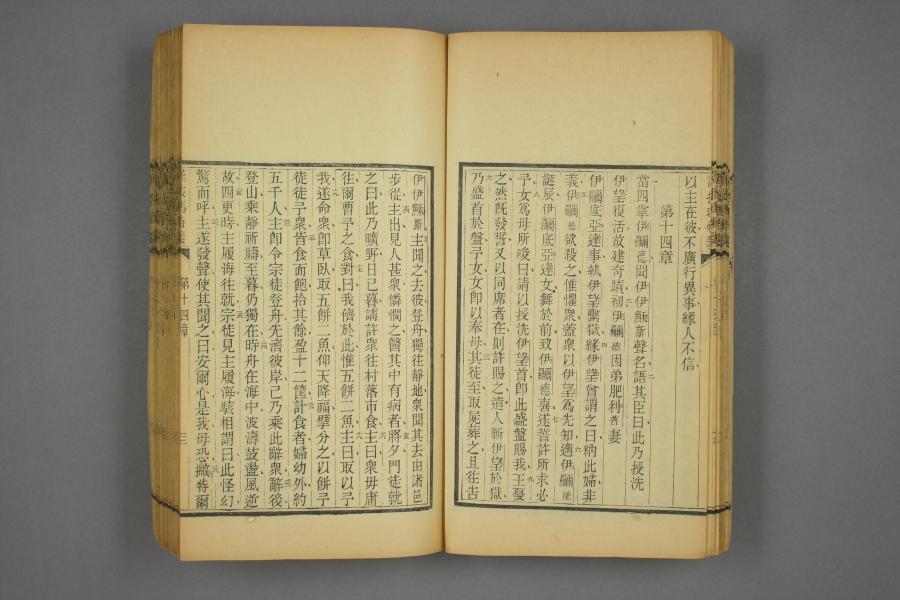 以主在彼不廣行異事緣人不信
第十四章
當四掌伊爾德聞伊伊穌斯聲名語其臣曰此乃授洗
伊望復活故建奇蹟初伊爾德因弟肥利普妻
伊爾底亞達事執伊望繫獄緣伊望曾謂之曰納此婦非
義伊爾德欲殺之惟懼衆蓋衆以伊望爲先知適伊爾德
誕辰伊爾底亞達女舞於前致伊爾德喜遂誓許所求必
予女爲母所唆曰請以授洗伊望首即此盛盤賜我王憂
之然旣發誓又以同席者在則許賜之遣人斬伊望於獄
乃盛首於盤予女女即以奉母其徒至取屍葬之且往告
伊伊穌斯主聞之去彼登舟獨往靜地衆聞其去由諸邑
步從主出見人甚衆憐憫之醫其中有病者將夕門徒就
之曰此乃曠野日已暮請許衆往村落市食主曰衆毋庸
往爾曹予之食對曰我儕於此惟五餅二魚主曰取以予
我遂命衆即草臥取五餅二魚仰天降福擘分之以餅予
徒徒予衆皆食而飽拾其餘盈十二筐計食者婦幼外約
五千人主即令宗徒登舟先濟彼岸己乃乘此辭衆辭後
登山乘靜祈禱至暮仍獨在時舟在海中波濤鼓盪風逆
故四更時主履海往就宗徒見主履海駭相謂曰此怪幻
驚而呼主遂發聲使其聞之曰安爾心是我毋恐撇特爾
第十四章
三